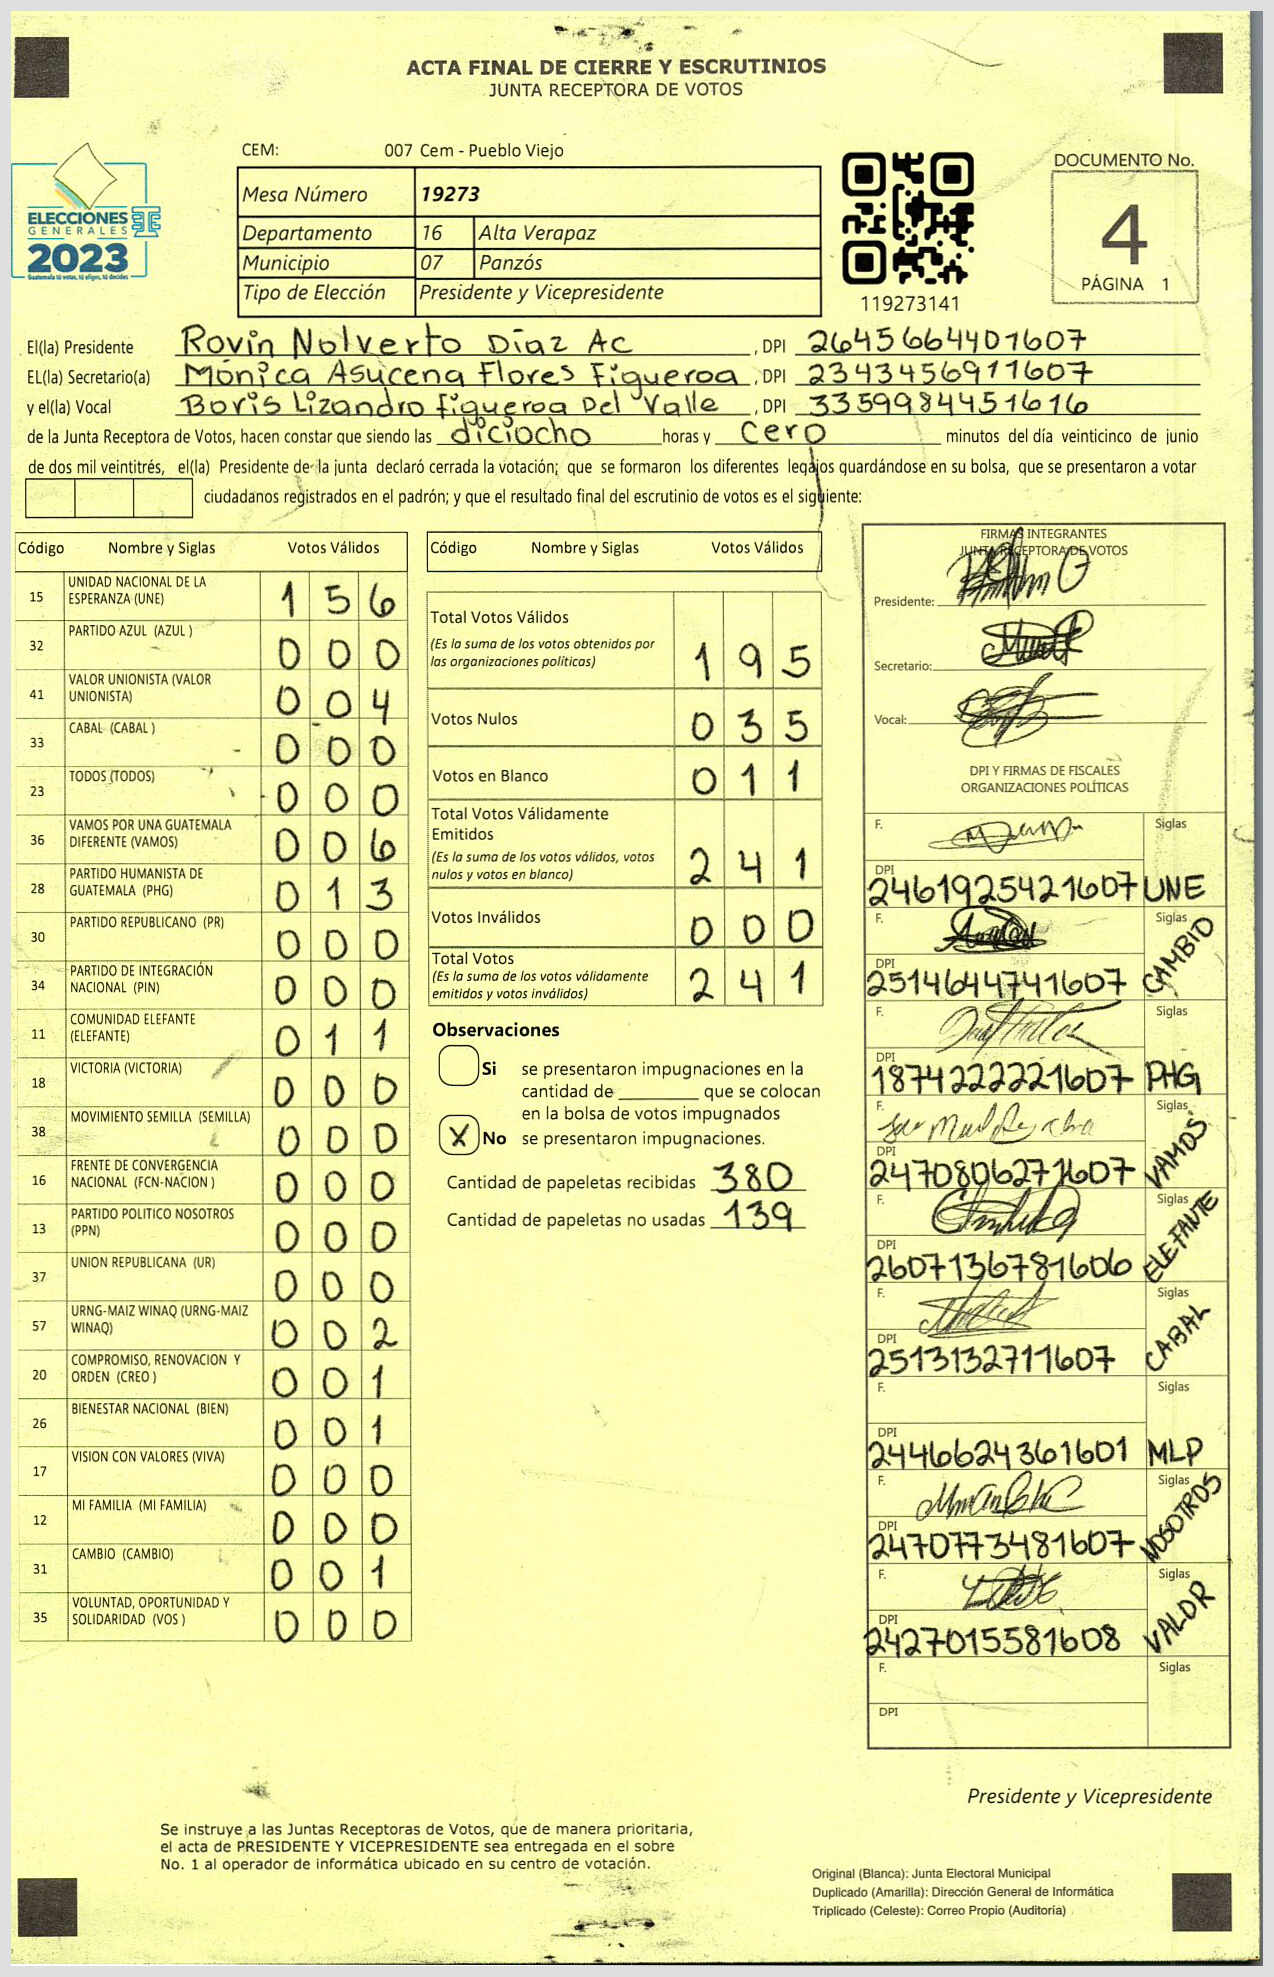 ACTA FINAL DE CIERRE Y ESCRUTINIOS
JUNTA RECEPTORA DE VOTOS
ELECCIONES
GENERALES
2023
Guatemala tú votas, tú eliges, tú decides
CEM: 007 Cem - Pueblo Viejo
Mesa Número 19273
Departamento 16 Alta Verapaz
Municipio 07 Panzós
Tipo de Elección Presidente y Vicepresidente
119273141
DOCUMENTO No.
4
PÁGINA 1
El(la) Presidente Rovin Nolverto Díaz Ac , DPI 2645664401607
EL(la) Secretario(a) Mónica Asucena Flores Figueroa , DPI 2343456911607
y el(la) Vocal Boris Lizandro Figueroa Del Valle , DPI 3359984451616
de la Junta Receptora de Votos, hacen constar que siendo las diciocho horas y cero minutos del día veinticinco de junio
de dos mil veintitrés, el(la) Presidente de la junta declaró cerrada la votación; que se formaron los diferentes legajos guardándose en su bolsa, que se presentaron a votar
ciudadanos registrados en el padrón; y que el resultado final del escrutinio de votos es el siguiente:
Código Nombre y Siglas Votos Válidos
15 UNIDAD NACIONAL DE LA ESPERANZA (UNE) 1 5 6
32 PARTIDO AZUL (AZUL ) 0 0 0
41 VALOR UNIONISTA (VALOR UNIONISTA) 0 0 4
33 CABAL (CABAL ) 0 0 0
23 TODOS (TODOS) 0 0 0
36 VAMOS POR UNA GUATEMALA DIFERENTE (VAMOS) 0 0 6
28 PARTIDO HUMANISTA DE GUATEMALA (PHG) 0 1 3
30 PARTIDO REPUBLICANO (PR) 0 0 0
34 PARTIDO DE INTEGRACIÓN NACIONAL (PIN) 0 0 0
11 COMUNIDAD ELEFANTE (ELEFANTE) 0 1 1
18 VICTORIA (VICTORIA) 0 0 0
38 MOVIMIENTO SEMILLA (SEMILLA) 0 0 0
16 FRENTE DE CONVERGENCIA NACIONAL (FCN-NACION ) 0 0 0
13 PARTIDO POLITICO NOSOTROS (PPN) 0 0 0
37 UNION REPUBLICANA (UR) 0 0 0
57 URNG-MAIZ WINAQ (URNG-MAIZ WINAQ) 0 0 2
20 COMPROMISO, RENOVACION Y ORDEN (CREO ) 0 0 1
26 BIENESTAR NACIONAL (BIEN) 0 0 1
17 VISION CON VALORES (VIVA) 0 0 0
12 MI FAMILIA (MI FAMILIA) 0 0 0
31 CAMBIO (CAMBIO) 0 0 1
35 VOLUNTAD, OPORTUNIDAD Y SOLIDARIDAD (VOS ) 0 0 0
Código Nombre y Siglas Votos Válidos
Total Votos Válidos
(Es la suma de los votos obtenidos por las organizaciones políticas) 1 9 5
Votos Nulos 0 3 5
Votos en Blanco 0 1 1
Total Votos Válidamente Emitidos
(Es la suma de los votos válidos, votos nulos y votos en blanco) 2 4 1
Votos Inválidos 0 0 0
Total Votos
(Es la suma de los votos válidamente emitidos y votos inválidos) 2 4 1
Observaciones
Si se presentaron impugnaciones en la
cantidad de ________ que se colocan
en la bolsa de votos impugnados
X No se presentaron impugnaciones.
Cantidad de papeletas recibidas 380
Cantidad de papeletas no usadas 139
FIRMAS INTEGRANTES
JUNTA RECEPTORA DE VOTOS
Presidente:
Secretario:
Vocal:
DPI Y FIRMAS DE FISCALES
ORGANIZACIONES POLÍTICAS
F. Siglas
DPI 2461925421607 UNE
F. Siglas
DPI 2514644741607 CAMBIO
F. Siglas
DPI 1874222221607 PHG
F. Siglas
DPI 2470806271607 VAMOS
F. Siglas
DPI 2607136781606 ELEFANTE
F. Siglas
DPI 2513132711607 CABAL
F. Siglas
DPI 2446624361601 MLP
F. Siglas
DPI 2470773481607 NOSOTROS
F. Siglas
DPI 2427015581608 VALOR
F. Siglas
DPI
Presidente y Vicepresidente
Se instruye a las Juntas Receptoras de Votos, que de manera prioritaria,
el acta de PRESIDENTE Y VICEPRESIDENTE sea entregada en el sobre
No. 1 al operador de informática ubicado en su centro de votación.
Original (Blanca): Junta Electoral Municipal
Duplicado (Amarilla): Dirección General de Informática
Triplicado (Celeste): Correo Propio (Auditoria)